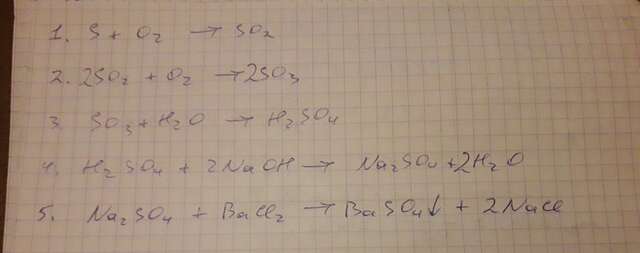 1. S + O₂ → SO₂
2. 2SO₂ + O₂ → 2SO₃
3. SO₃ + H₂O → H₂SO₄
4. H₂SO₄ + 2NaOH → Na₂SO₄ + 2H₂O
5. Na₂SO₄ + BaCl₂ → BaSO₄↓ + 2NaCl